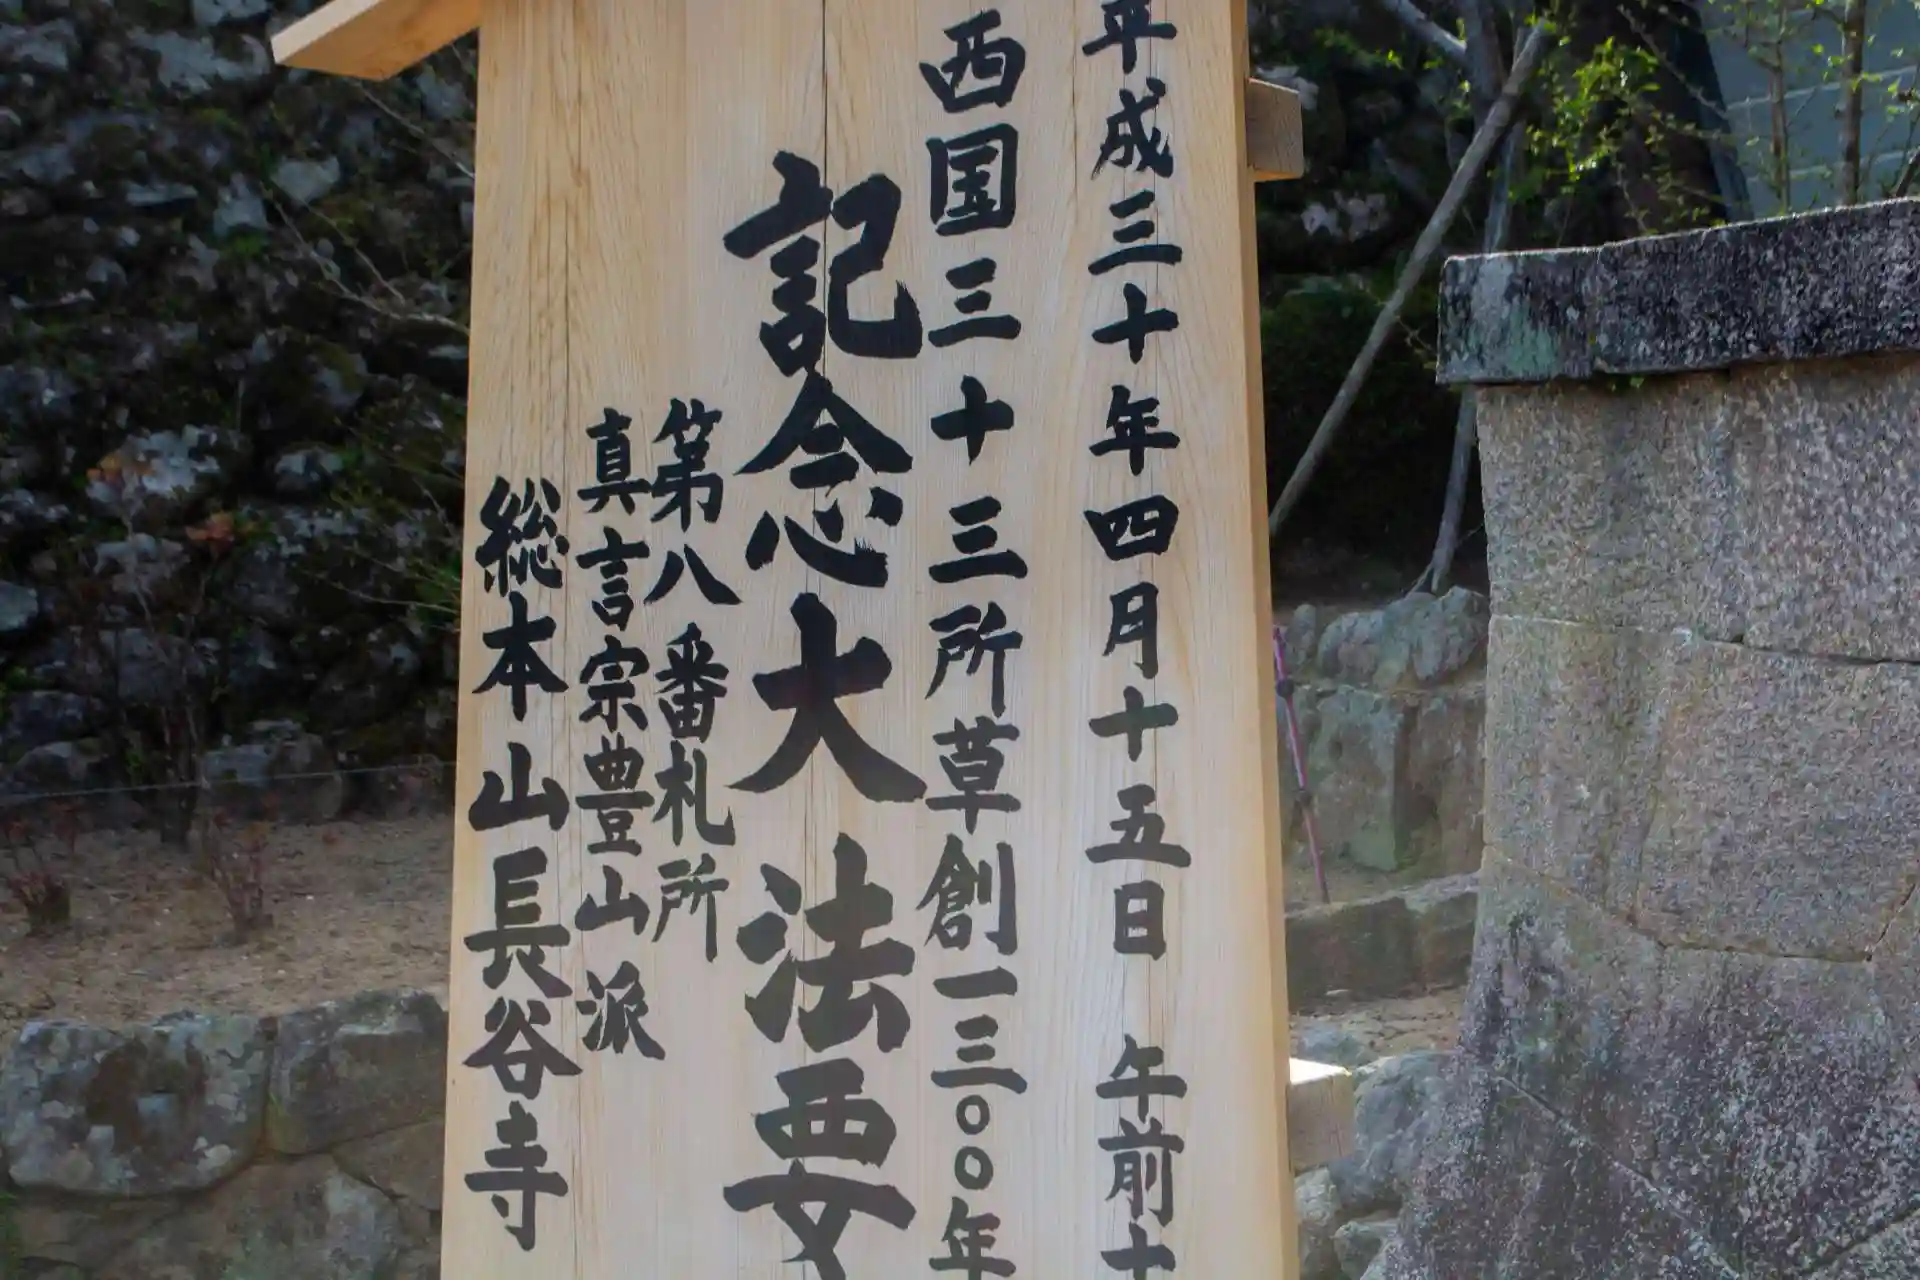 平成三十年四月十五日 午前十
西国三十三所草創一三〇〇年
記念大法要
第八番札所
真言宗豊山派
総本山長谷寺